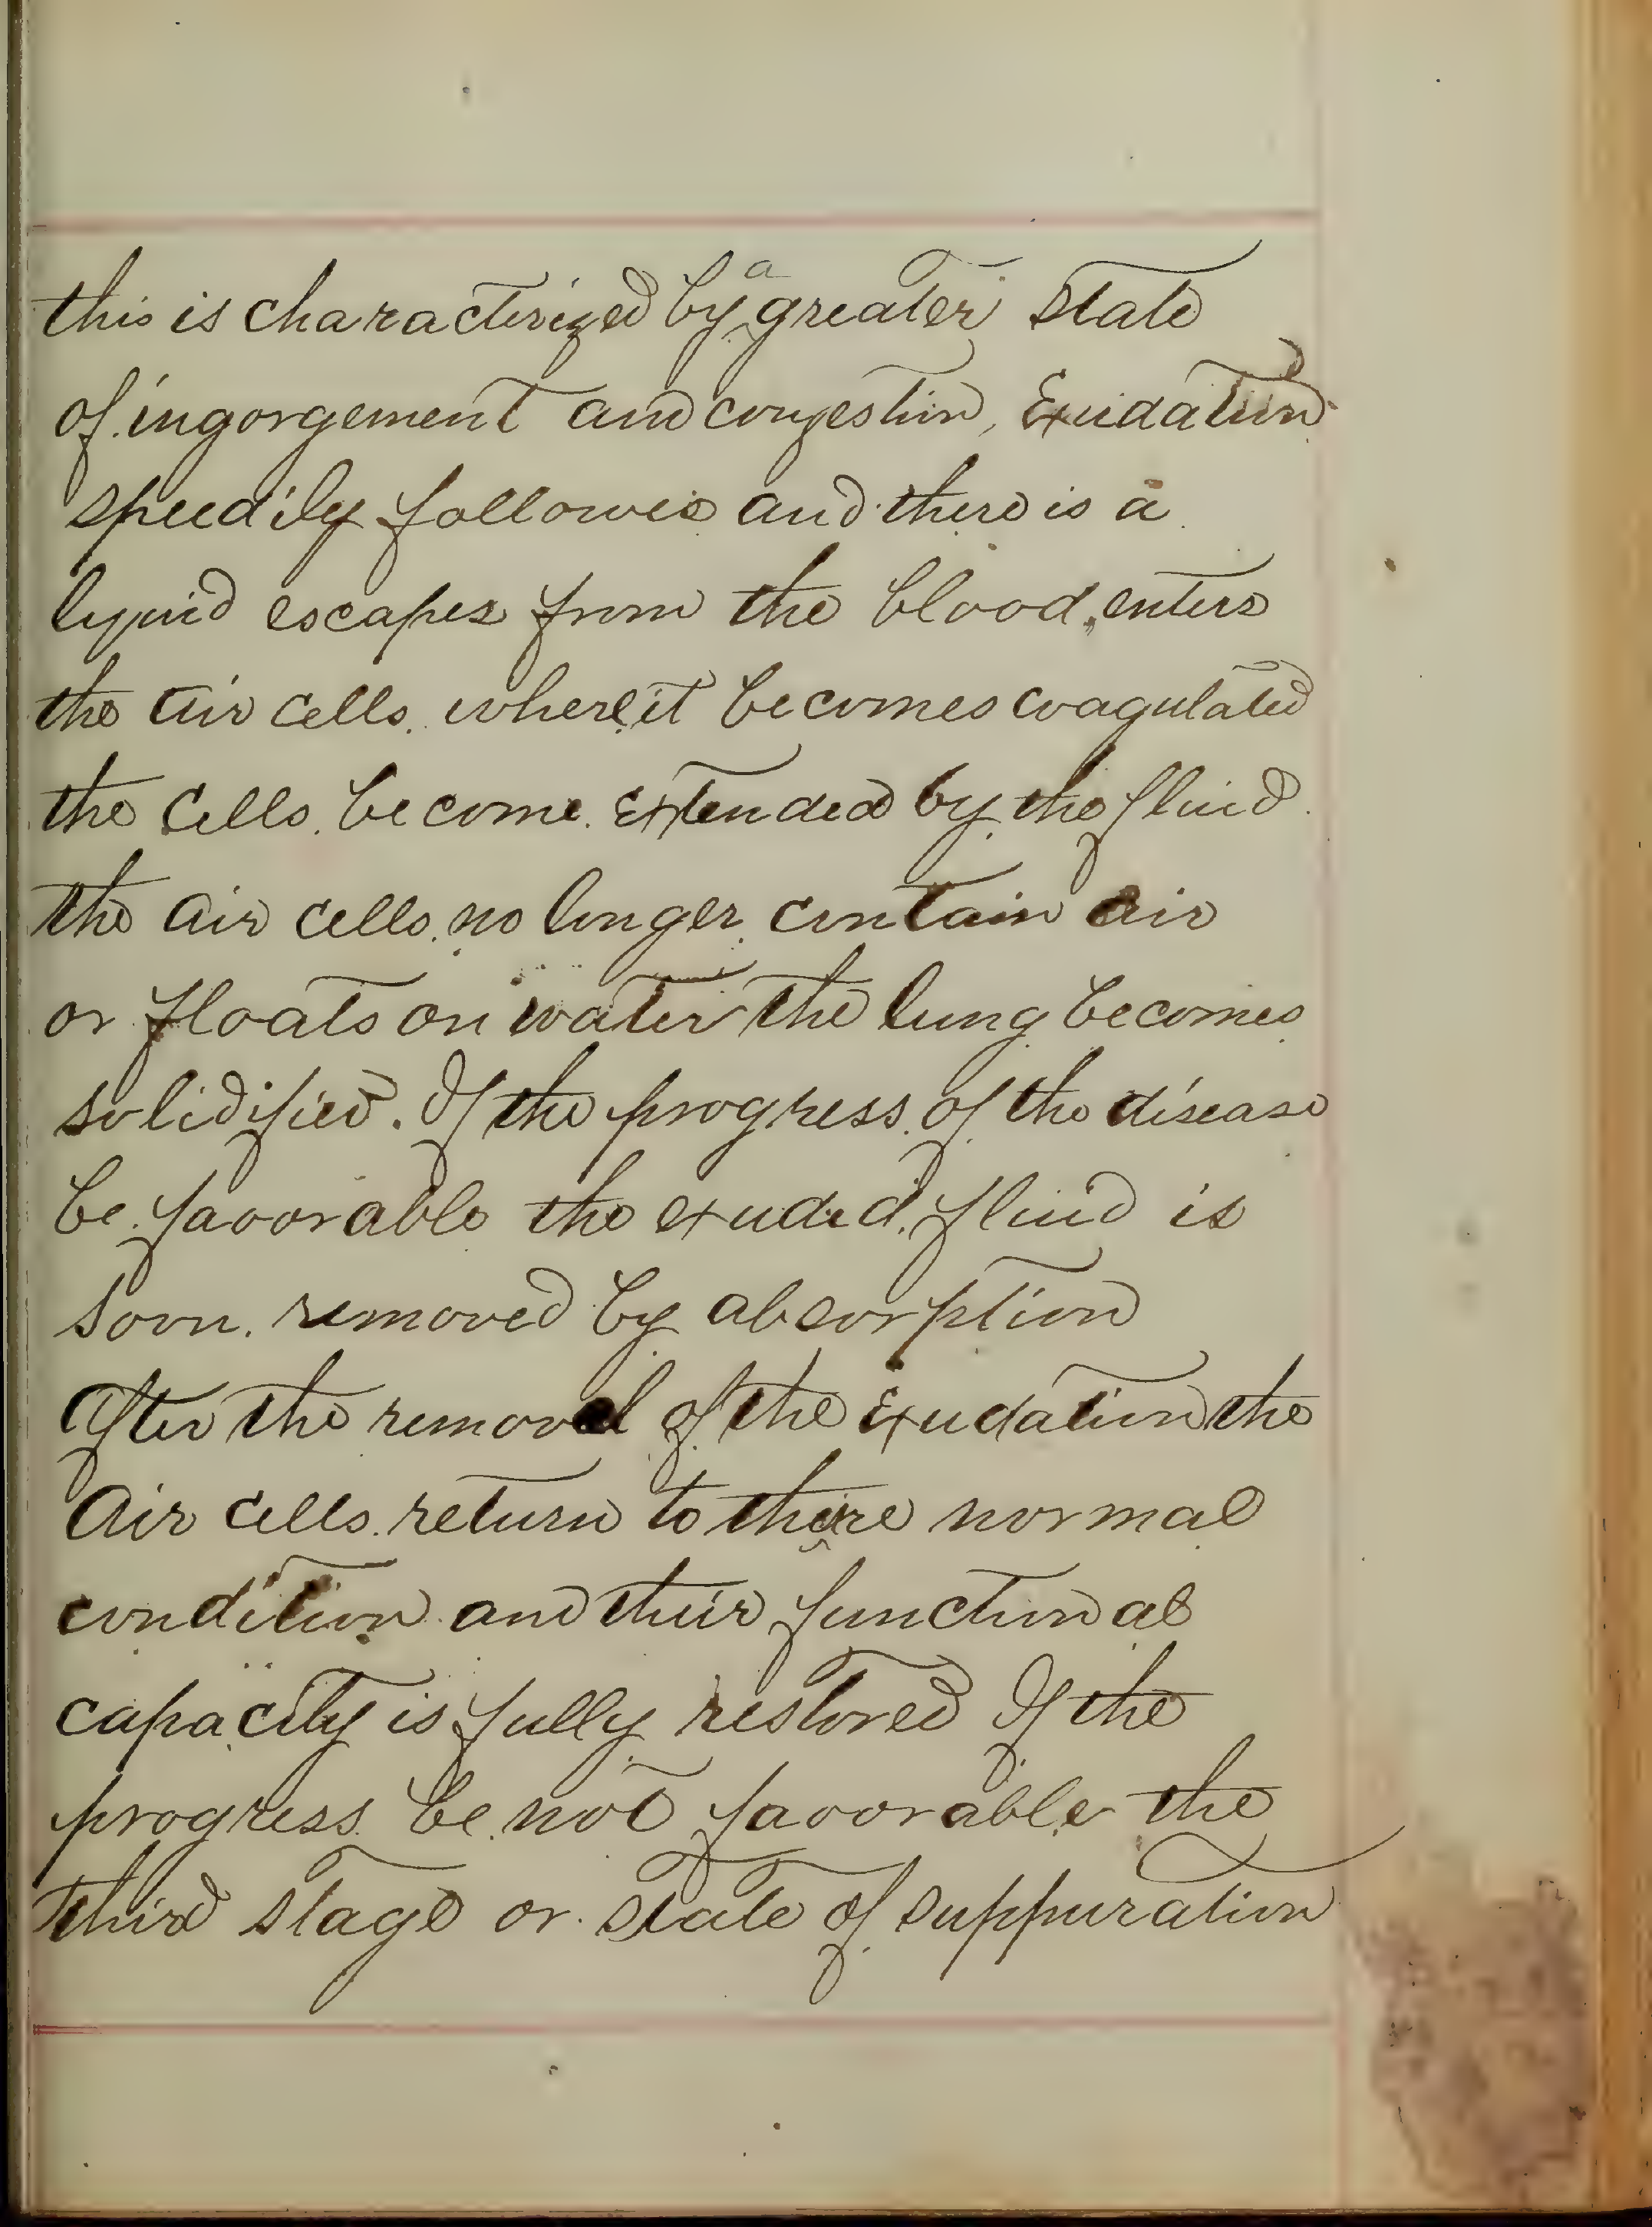 this is characterized by a greater state
of ingorgement and congestion, Exudation
speedily follows and there is a
lyquid escapes from the blood, enters
the air cells where it becomes coagulated
the cells become extended by the fluid
the air cells no longer contain air
or floats on water the lung becomes
solidified. If the progress of the disease
be favorable the exuded fluid is
soon removed by absorption
After the removal of the Exudation the
Air cells return to there normal
condition and their functional
capacity is fully restored If the
progress be not favorable the
third stage or state of suppuration